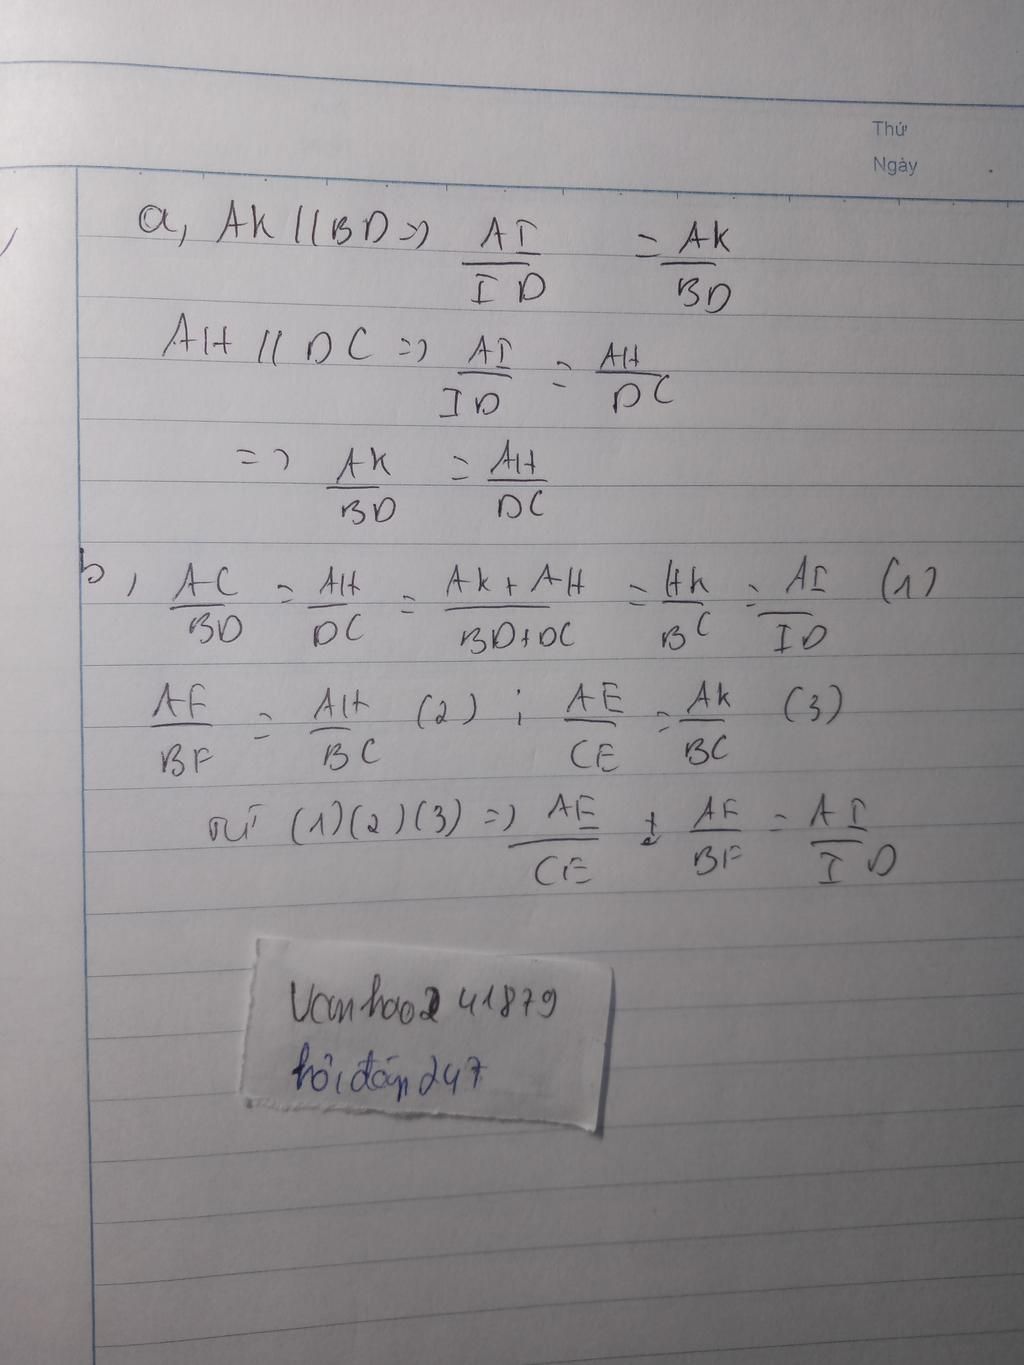 Thứ
Ngày
a, AK // BD => AI/ID = AK/BD
AH // DC => AI/ID = AH/DC
=> AK/BD = AH/DC
b, AC/BD = AH/DC = AK + AH/BD + DC = HK/BC = AI/ID (1)
AF/BF = AH/BC (2) ; AE/CE = AK/BC (3)
từ (1)(2)(3) => AE/CE + AF/BF = AI/ID
Vanhao241879
hỏi đáp 247